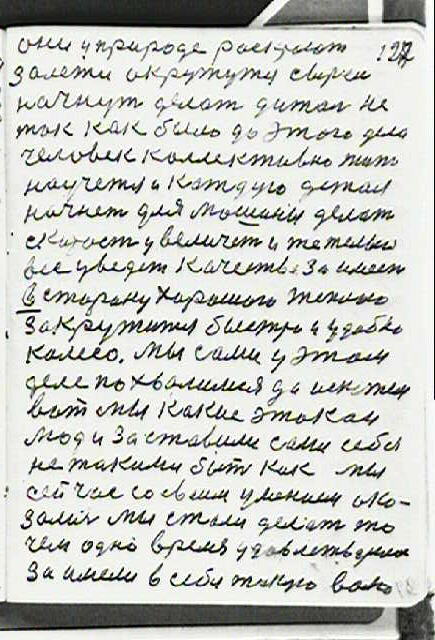 они у природе раскулат 127
залети окружутся сварки
начнут делат дитал не
так как было до этого дела
человек коллективно тот
научетя и каждую детал
начнет для машины делат
скорост увеличет и тетельно
все уведет качество за имеет
в сторону хорошого тепло
закружится быстро и удобно
колесо. мы сами у этом
деле похвалимся да искажем
вот мы какие этокаи
люди заставили сами себя
не такими быт как мы
сейчас со своим умением ока-
залис мы стали делат то
чем одно время удовлетворил
за имели в себя такую волю